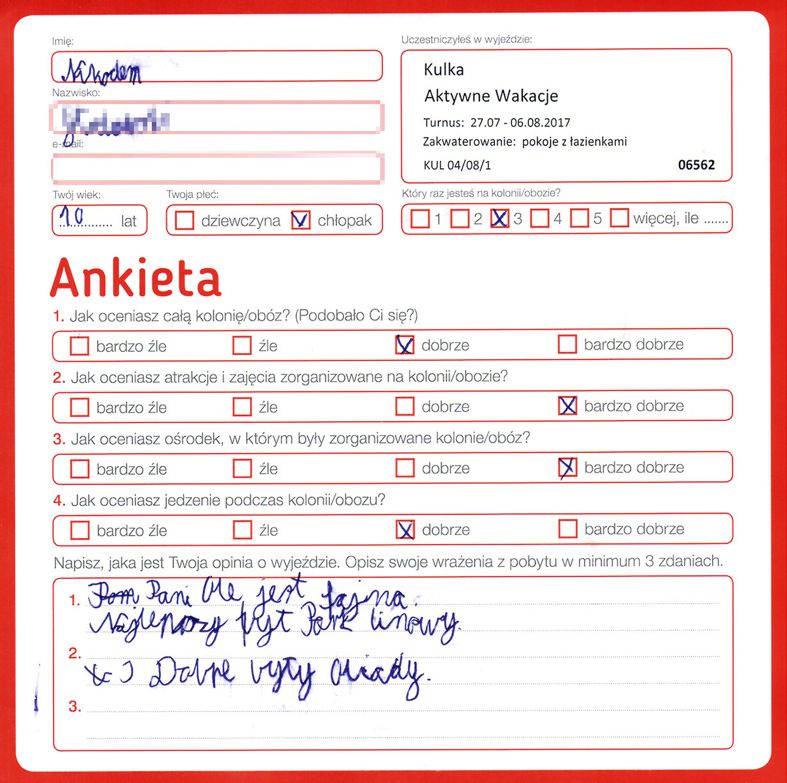 Imię:
Nikodem
Nazwisko:
e-mail:
Twój wiek:
10 lat
Twoja płeć:
dziewczyna chłopak
Uczestniczyłeś w wyjeździe:
Kulka
Aktywne Wakacje
Turnus: 27.07 - 06.08.2017
Zakwaterowanie: pokoje z łazienkami
KUL 04/08/1 06562
Który raz jesteś na kolonii/obozie?
1 2 3 4 5 więcej, ile .......
Ankieta
1. Jak oceniasz całą kolonię/obóz? (Podobało Ci się?)
bardzo źle źle dobrze bardzo dobrze
2. Jak oceniasz atrakcje i zajęcia zorganizowane na kolonii/obozie?
bardzo źle źle dobrze bardzo dobrze
3. Jak oceniasz ośrodek, w którym były zorganizowane kolonie/obóz?
bardzo źle źle dobrze bardzo dobrze
4. Jak oceniasz jedzenie podczas kolonii/obozu?
bardzo źle źle dobrze bardzo dobrze
Napisz, jaka jest Twoja opinia o wyjeździe. Opisz swoje wrażenia z pobytu w minimum 3 zdaniach.
1. Pani Ole jest fajna.
Najlepszy był Park linowy.
2.
Dobre były obiady.
3.